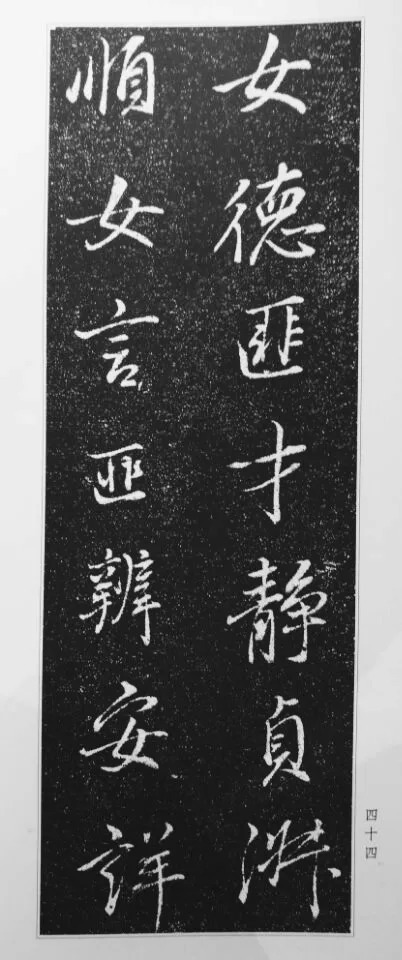 女德匪才静貞淑
順女言匪辨安詳
四十四